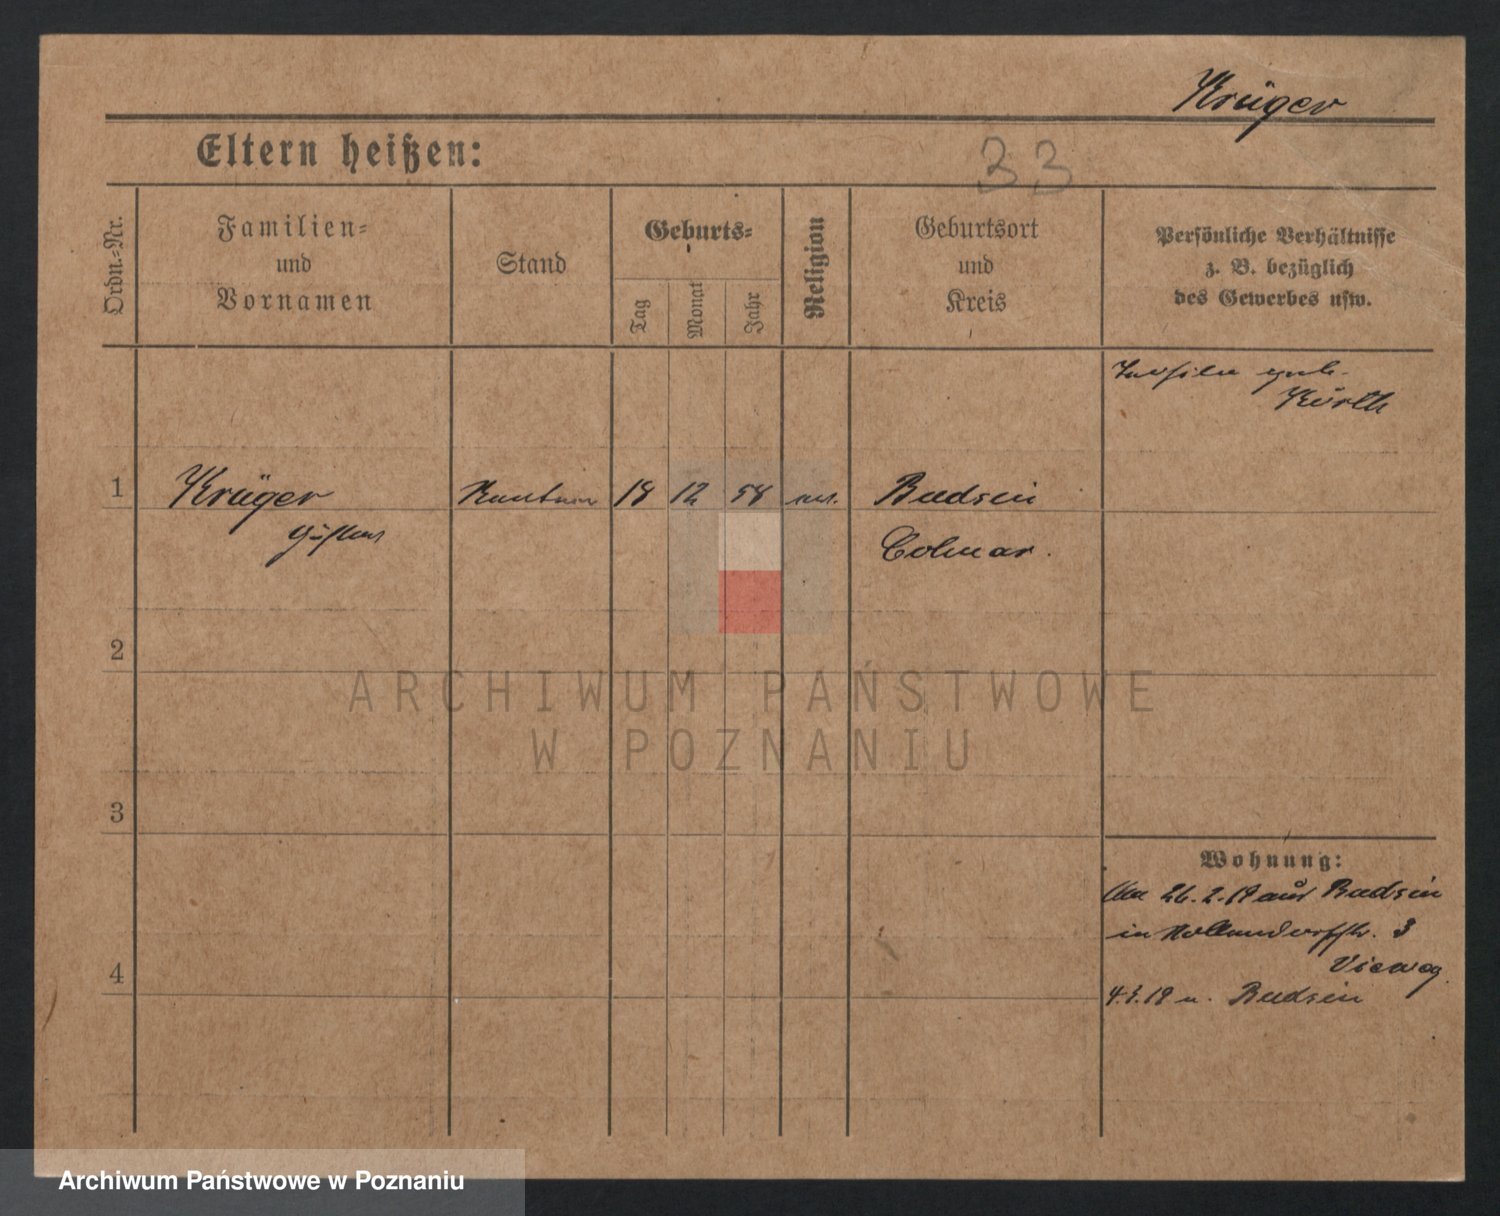 Krüger
Eltern heißen:
33
Ordn.-Nr.
Familien-
und
Vornamen
Stand
Geburts-
Tag
Monat
Jahr
Religion
Geburtsort
und
Kreis
Persönliche Verhältnisse
z. B. bezüglich
des Gewerbes usw.
geb.
Kürth
1
Krüger
Gustav
18 12 58
Budsin
Colmar.
2
3
4
Wohnung:
26.2.19 aus Budsin
in 3
Vieweg
4.3.19 n. Budsin
ARCHIWUM PAŃSTWOWE
W POZNANIU
Archiwum Państwowe w Poznaniu